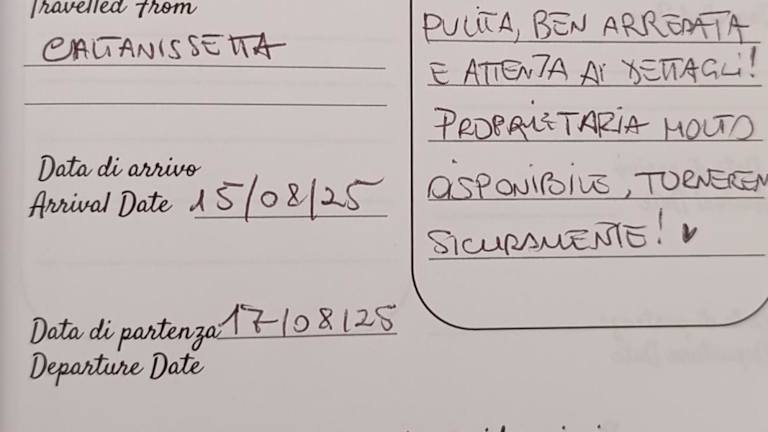 Travelled from
CALTANISSETTA
Data di arrivo
Arrival Date 15/08/25
Data di partenza 17/08/25
Departure Date
PULITA, BEN ARREDATA
E ATTENTA AI DETTAGLI!
PROPRIETARIA MOLTO
DISPONIBILE, TORNEREM
SICURAMENTE!